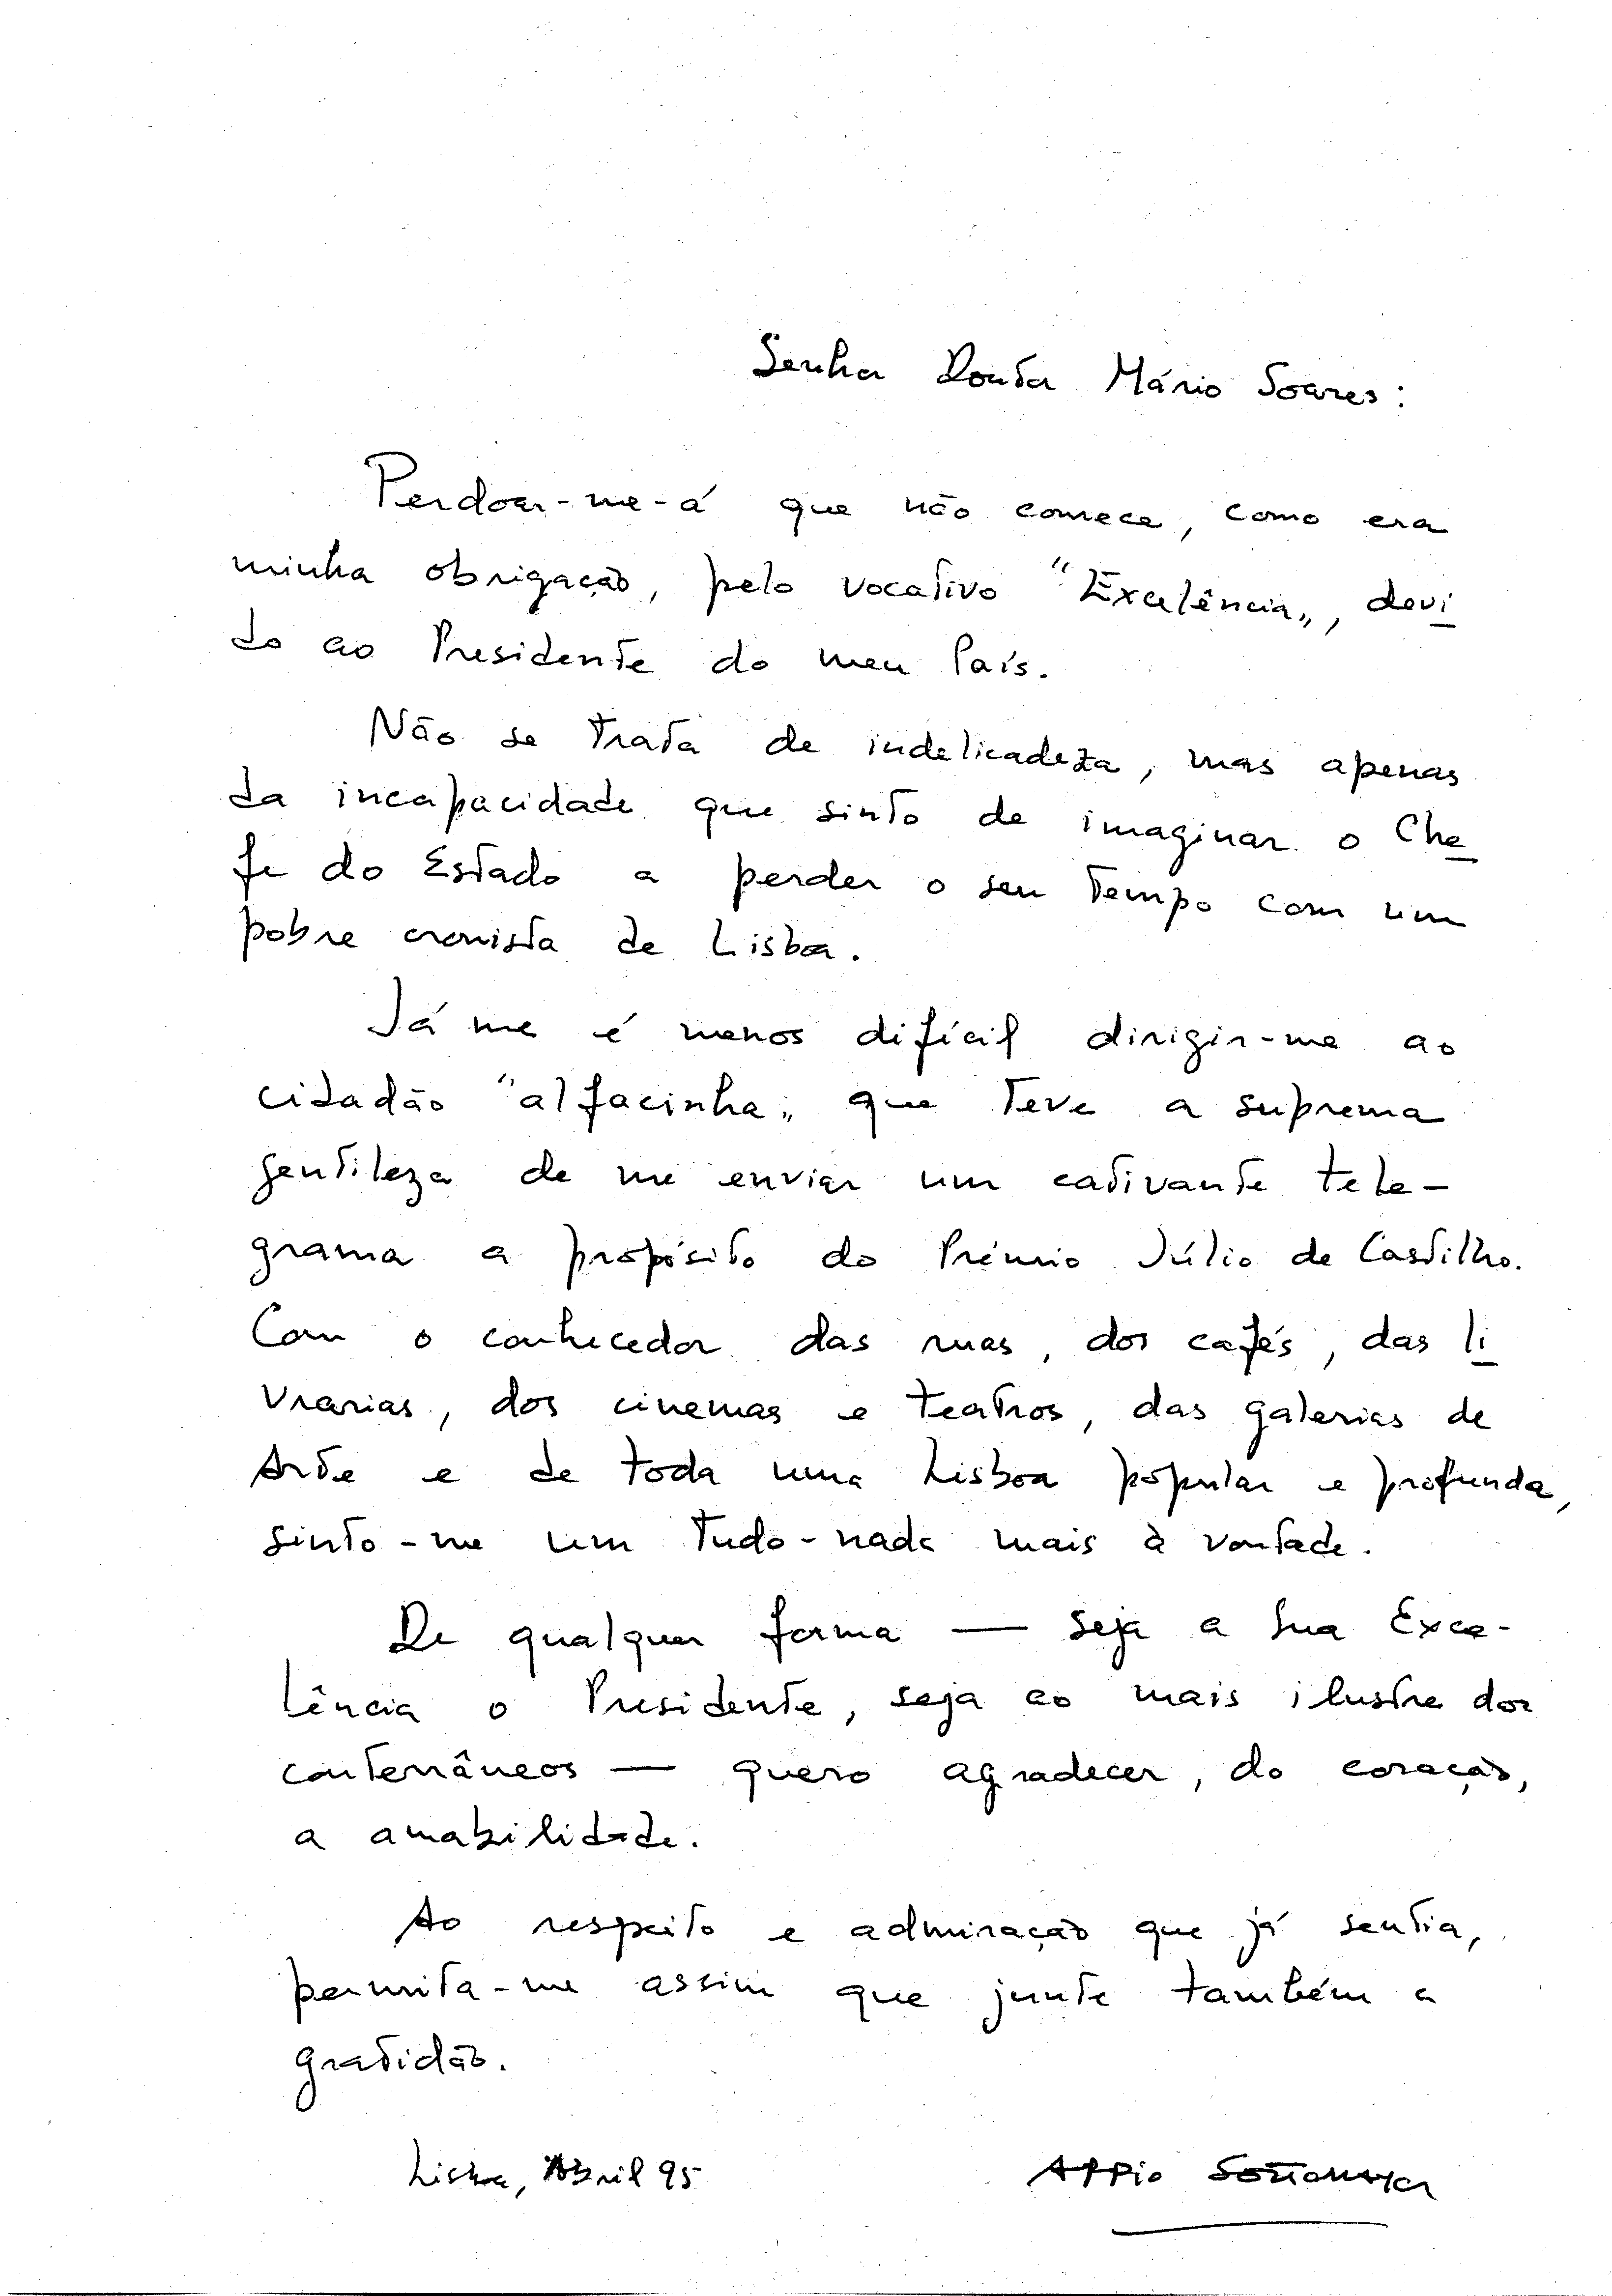 Senhor Doutor Mário Soares:
Perdoar-me-á que não comece, como era
minha obrigação, pelo vocativo "Excelência", devi
do ao Presidente do meu País.
Não se trata de indelicadeza, mas apenas
da incapacidade que sinto de imaginar o Che
fe do Estado a perder o seu tempo com um
pobre cronista de Lisboa.
Já me é menos difícil dirigir-me ao
cidadão "alfacinha" que teve a suprema
gentileza de me enviar um cativante tele-
grama a propósito do Prémio Júlio de Castilho.
Com o conhecedor das ruas, dos cafés, das li
vrarias, dos cinemas e teatros, das galerias de
Arte e de toda uma Lisboa popular e profunda,
sinto-me um tudo-nada mais à vontade.
De qualquer forma — seja a Sua Exce-
lência o Presidente, seja ao mais ilustre dos
conterrâneos — quero agradecer, do coração,
a amabilidade.
Ao respeito e admiração que já sentia,
permita-me assim que junte também a
gratidão.
Lisboa, Abril 95 Appio Sottomayor